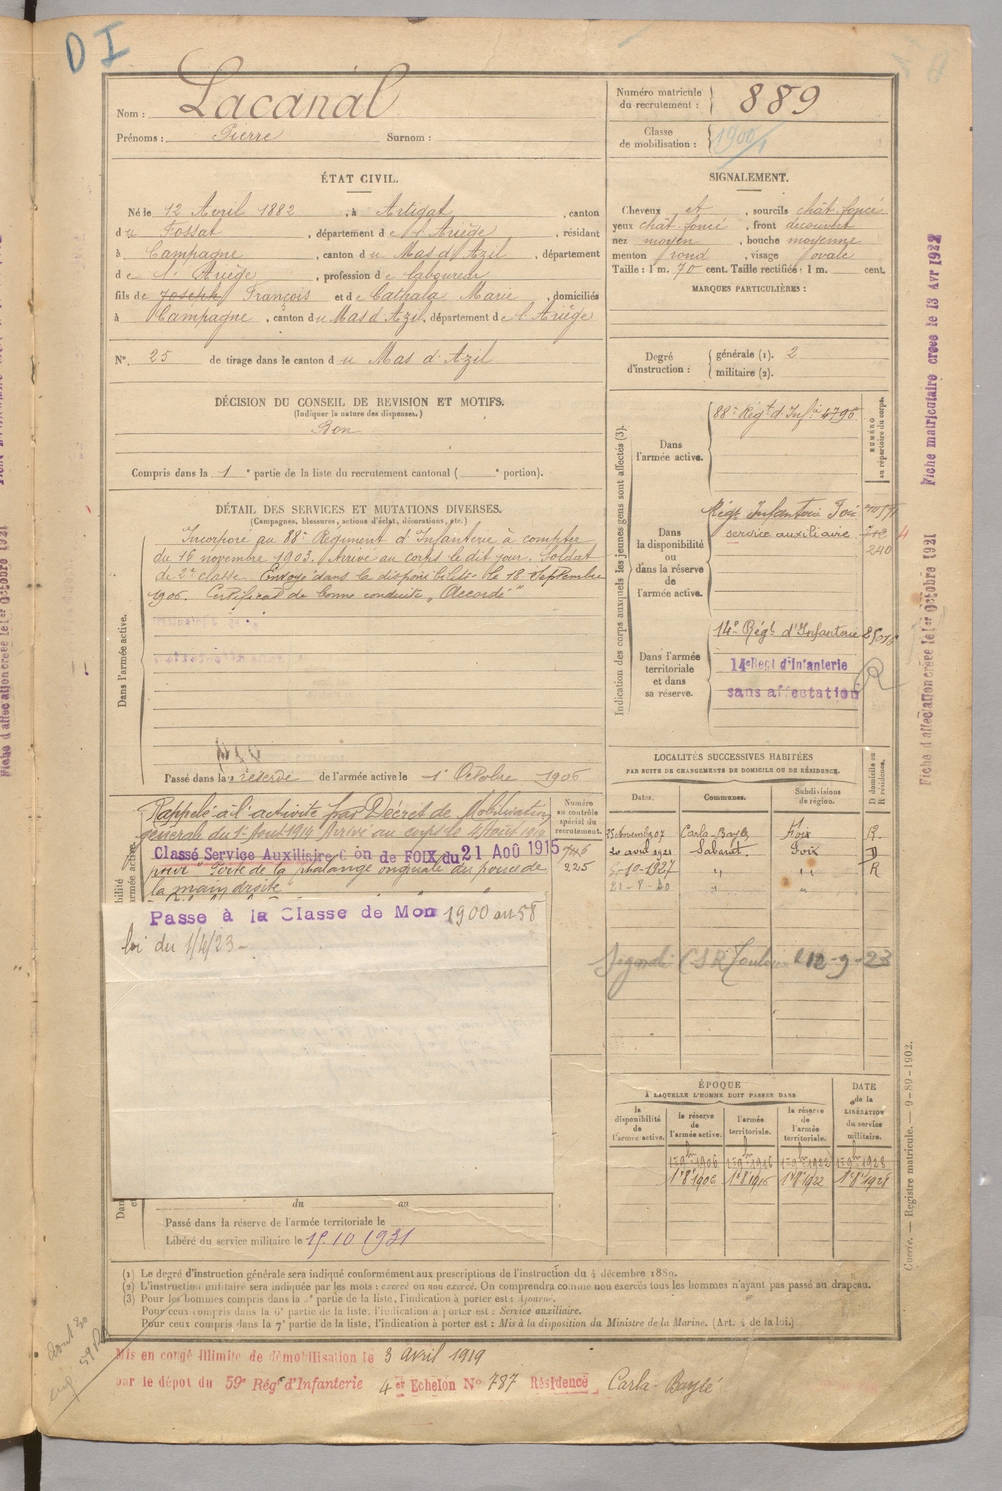 D I
Nom : Lacanal
Prénoms : Pierre Surnom :
Numéro matricule du recrutement : 889
Classe de mobilisation : 1900/1
ÉTAT CIVIL.
Né le 12 Avril 1882, à Artigat, canton
du Fossat, département de l'Ariège, résidant
à Campagne, canton du Mas d'Azil, département
de l'Ariège, profession de laboureur
fils de Joseph François et de Cathala Marie, domiciliés
à Campagne, canton du Mas d'Azil, département de l'Ariège
N° 25 de tirage dans le canton du Mas d'Azil
SIGNALEMENT.
Cheveux et, sourcils chât. foncé
yeux chât. foncé, front découvert
nez moyen, bouche moyenne
menton rond, visage ovale
Taille : 1 m. 70 cent. Taille rectifiée : 1 m. cent.
MARQUES PARTICULIÈRES :
Degré d'instruction : générale (1). 2
militaire (2).
DÉCISION DU CONSEIL DE REVISION ET MOTIFS.
(Indiquer la nature des dispenses.)
Bon
Compris dans la 1e partie de la liste du recrutement cantonal ( e portion).
DÉTAIL DES SERVICES ET MUTATIONS DIVERSES.
(Campagnes, blessures, actions d'éclat, décorations, etc.)
Dans l'armée active.
Incorporé au 88e Régiment d'Infanterie à compter
du 16 novembre 1903. Arrivé au corps le dit jour. Soldat
de 2e classe. Envoyé dans la disponibilité le 18 Septembre
1906. Certificat de bonne conduite "Accordé"
Passé dans la réserve de l'armée active le 1er Octobre 1906
Rappelé à l'activité par Décret de Mobilisation
générale du 1er Aout 1914 Arrivé au corps le 4 Aout 1914
Classé Service Auxiliaire C on de FOIX du 21 Aoû 1915
pour "Perte de la phalange onguéale du pouce de
la main droite
Passe à la Classe de Mon 1900 art 58
loi du 1/4/23
du au
Passé dans la réserve de l'armée territoriale le
Libéré du service militaire le 15.10 1931
Numéro au contrôle spécial du recrutement.
225
Indication des corps auxquels les jeunes gens sont affectés (3).
NUMÉRO au répertoire du corps.
Dans l'armée active.
88e Régt d'Infie 4795
Dans la disponibilité ou dans la réserve de l'armée active.
Régt Infanterie Foix
service auxiliaire
240
Dans l'armée territoriale et dans sa réserve.
14e Régt d'Infanterie
14e Regt d'Infanterie
sans affectation
R
LOCALITÉS SUCCESSIVES HABITÉES
PAR SUITE DE CHANGEMENTS DE DOMICILE OU DE RÉSIDENCE.
Dates. Communes. Subdivisions de région. D domicile ou R résidence.
25 Novemb 07 Carla-Bayle Foix R
20 avril 1921 Sabarat Foix D
5-10-1927 " " R
21-8-30 " "
12-9-23
ÉPOQUE
À LAQUELLE L'HOMME DOIT PASSER DANS
la disponibilité de l'armée active.
la réserve de l'armée active.
l'armée territoriale.
la réserve de l'armée territoriale.
DATE de la LIBÉRATION du service militaire.
1er 9bre 1906 1er 9bre 1916 1er 9bre 1922 1er 9bre 1928
1er 8bre 1906 1er 8bre 1916 1er 8bre 1922 1er 8bre 1928
(1) Le degré d'instruction générale sera indiqué conformément aux prescriptions de l'instruction du 4 décembre 1889.
(2) L'instruction militaire sera indiquée par les mots : exercé ou non exercé. On comprendra comme non exercés tous les hommes n'ayant pas passé au drapeau.
(3) Pour les hommes compris dans la 5e partie de la liste, l'indication à porter est : Ajourné.
Pour ceux compris dans la 6e partie de la liste, l'indication à porter est : Service auxiliaire.
Pour ceux compris dans la 7e partie de la liste, l'indication à porter est : Mis à la disposition du Ministre de la Marine. (Art. 4 de la loi.)
Mis en congé illimité de démobilisation le 3 Avril 1919
par le dépot du 59e Rég t d'Infanterie 4er Echelon No 787 Résidence Carla-Baylé
Fiche matriculaire créée le 13 Avr 1922
Fiche d'affectation créée le 1er Octobre 1921
Guerre. — Registre matricule. — 9-89-1902.